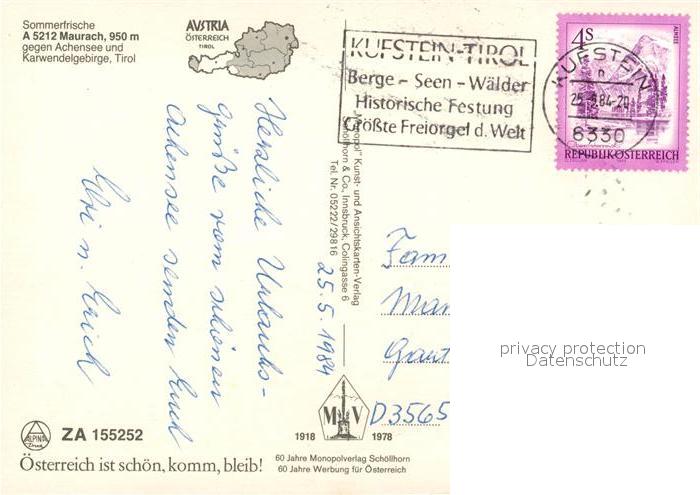 Sommerfrische
A 5212 Maurach, 950 m
gegen Achensee und
Karwendelgebirge, Tirol
AVSTRIA
ÖSTERREICH
TIROL
KUFSTEIN-TIROL
Berge - Seen - Wälder
Historische Festung
Größte Freiorgel d. Welt
KUFSTEIN
25.-5.84-20
6330
4S
ALMSEE
REPUBLIK ÖSTERREICH
Herzliche Urlaubs-
grüße vom schönen
Achensee senden Euch
Elvi u. Erich
25.5.1984
"Monopol" Kunst- und Ansichtskarten-Verlag
Schöllhorn & Co., Innsbruck, Colingasse 6
Tel. Nr. 05222/29816
Fam
Mar
Gaut
D3565
privacy protection
Datenschutz
ALPINA
Druck
ZA 155252
M V
1918 1978
Österreich ist schön, komm, bleib!
60 Jahre Monopolverlag Schöllhorn
60 Jahre Werbung für Österreich